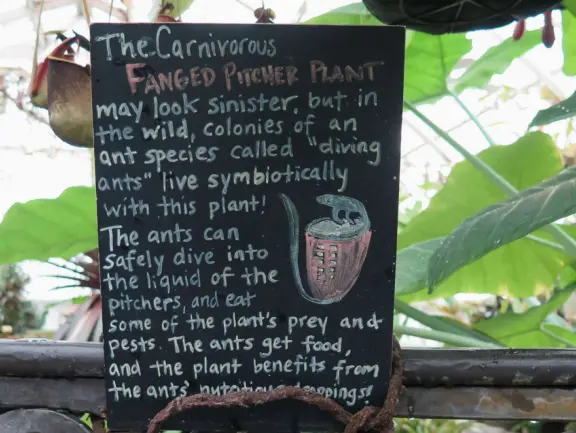 The Carnivorous
FANGED PITCHER PLANT
may look sinister, but in
the wild, colonies of an
ant species called "diving
ants" live symbiotically
with this plant!
The ants can
safely dive into
the liquid of the
pitchers, and eat
some of the plant's prey and
pests. The ants get food,
and the plant benefits from
the ants'